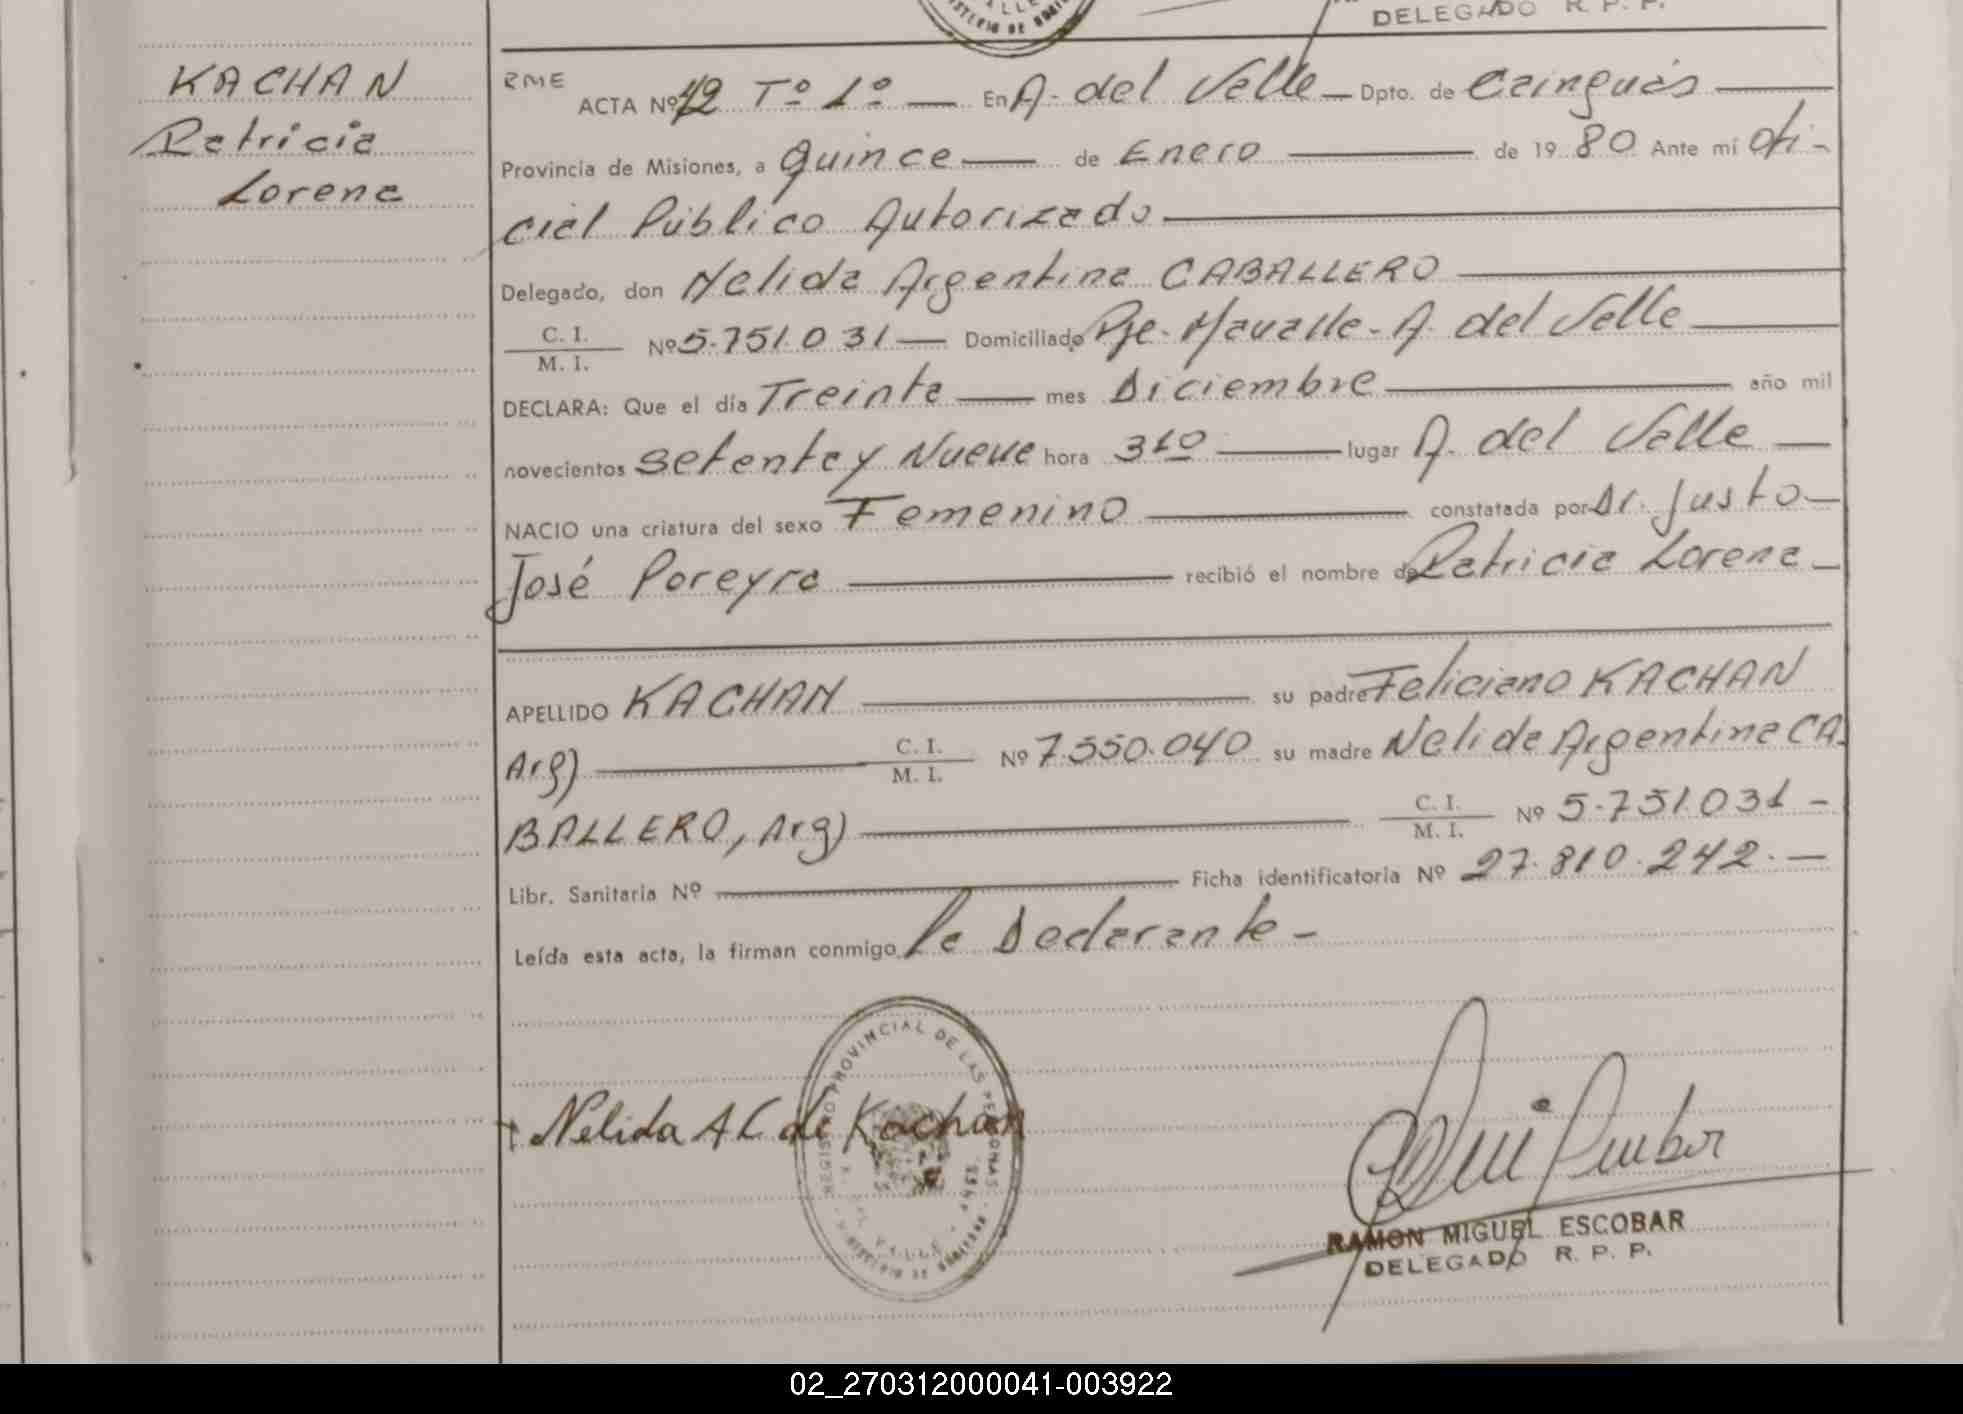 DELEGADO R. P. P.
KACHAN
Patricia
Lorena
RME
ACTA Nº 42 Tº 1º — En A. del Valle — Dpto. de Cainguás —
Provincia de Misiones, a Quince — de Enero — de 1980 Ante mí Ofi-
cial Público Autorizado —
Delegado, don Nelida Argentina CABALLERO —
C. I.
M. I.
Nº 5.751.031 — Domiciliado Pje. A. del Valle —
DECLARA: Que el día Treinta — mes Diciembre — año mil
novecientos setenta y Nueve hora 3 10 — lugar A. del Valle —
NACIO una criatura del sexo Femenino — constatada por Dr. Justo —
José Pereyra — recibió el nombre de Patricia Lorena —
APELLIDO KACHAN — su padre Feliciano KACHAN
Arg) — C. I. / M. I. Nº 7.550.040 su madre Nelida Argentina CA-
BALLERO, Arg) — C. I. / M. I. Nº 5.751.031 -
Libr. Sanitaria Nº — Ficha identificatoria Nº 27.810.242. —
Leída esta acta, la firman conmigo la Declarante -
REGISTRO PROVINCIAL DE LAS PERSONAS
VALLE
Nelida A C de Kachan
RAMON MIGUEL ESCOBAR
DELEGADO R. P. P.
02_270312000041-003922